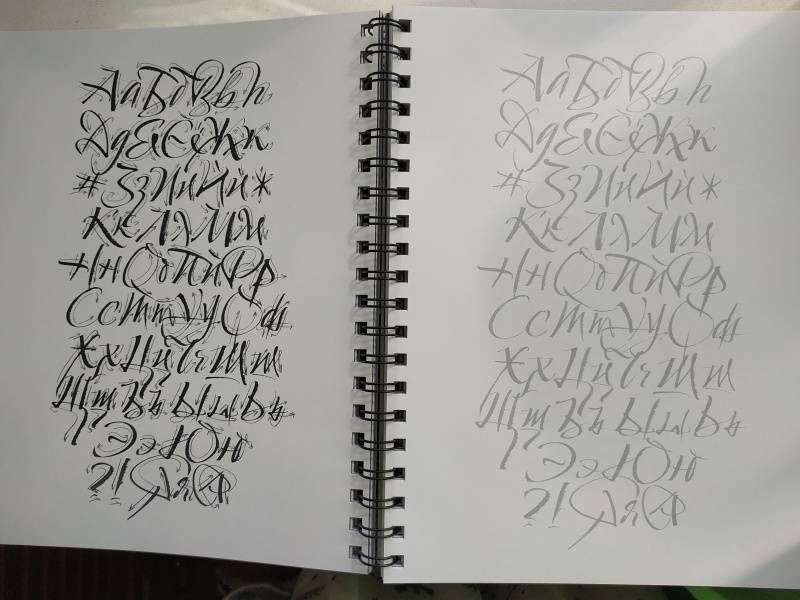 АаБбВвh
ДдЕеЄёЖж
#ЗзИиЙй*
КкЛлМм
НнОоПпРр
СсТтУуФф
ХхЦцЧчШш
ЩщЪъЫыЬь
ЭэЮю
?!Яя
АаБбВвh
ДдЕеЄёЖж
#ЗзИиЙй*
КкЛлМм
НнОоПпРр
СсТтУуФф
ХхЦцЧчШш
ЩщЪъЫыЬь
ЭэЮю
?!Яя